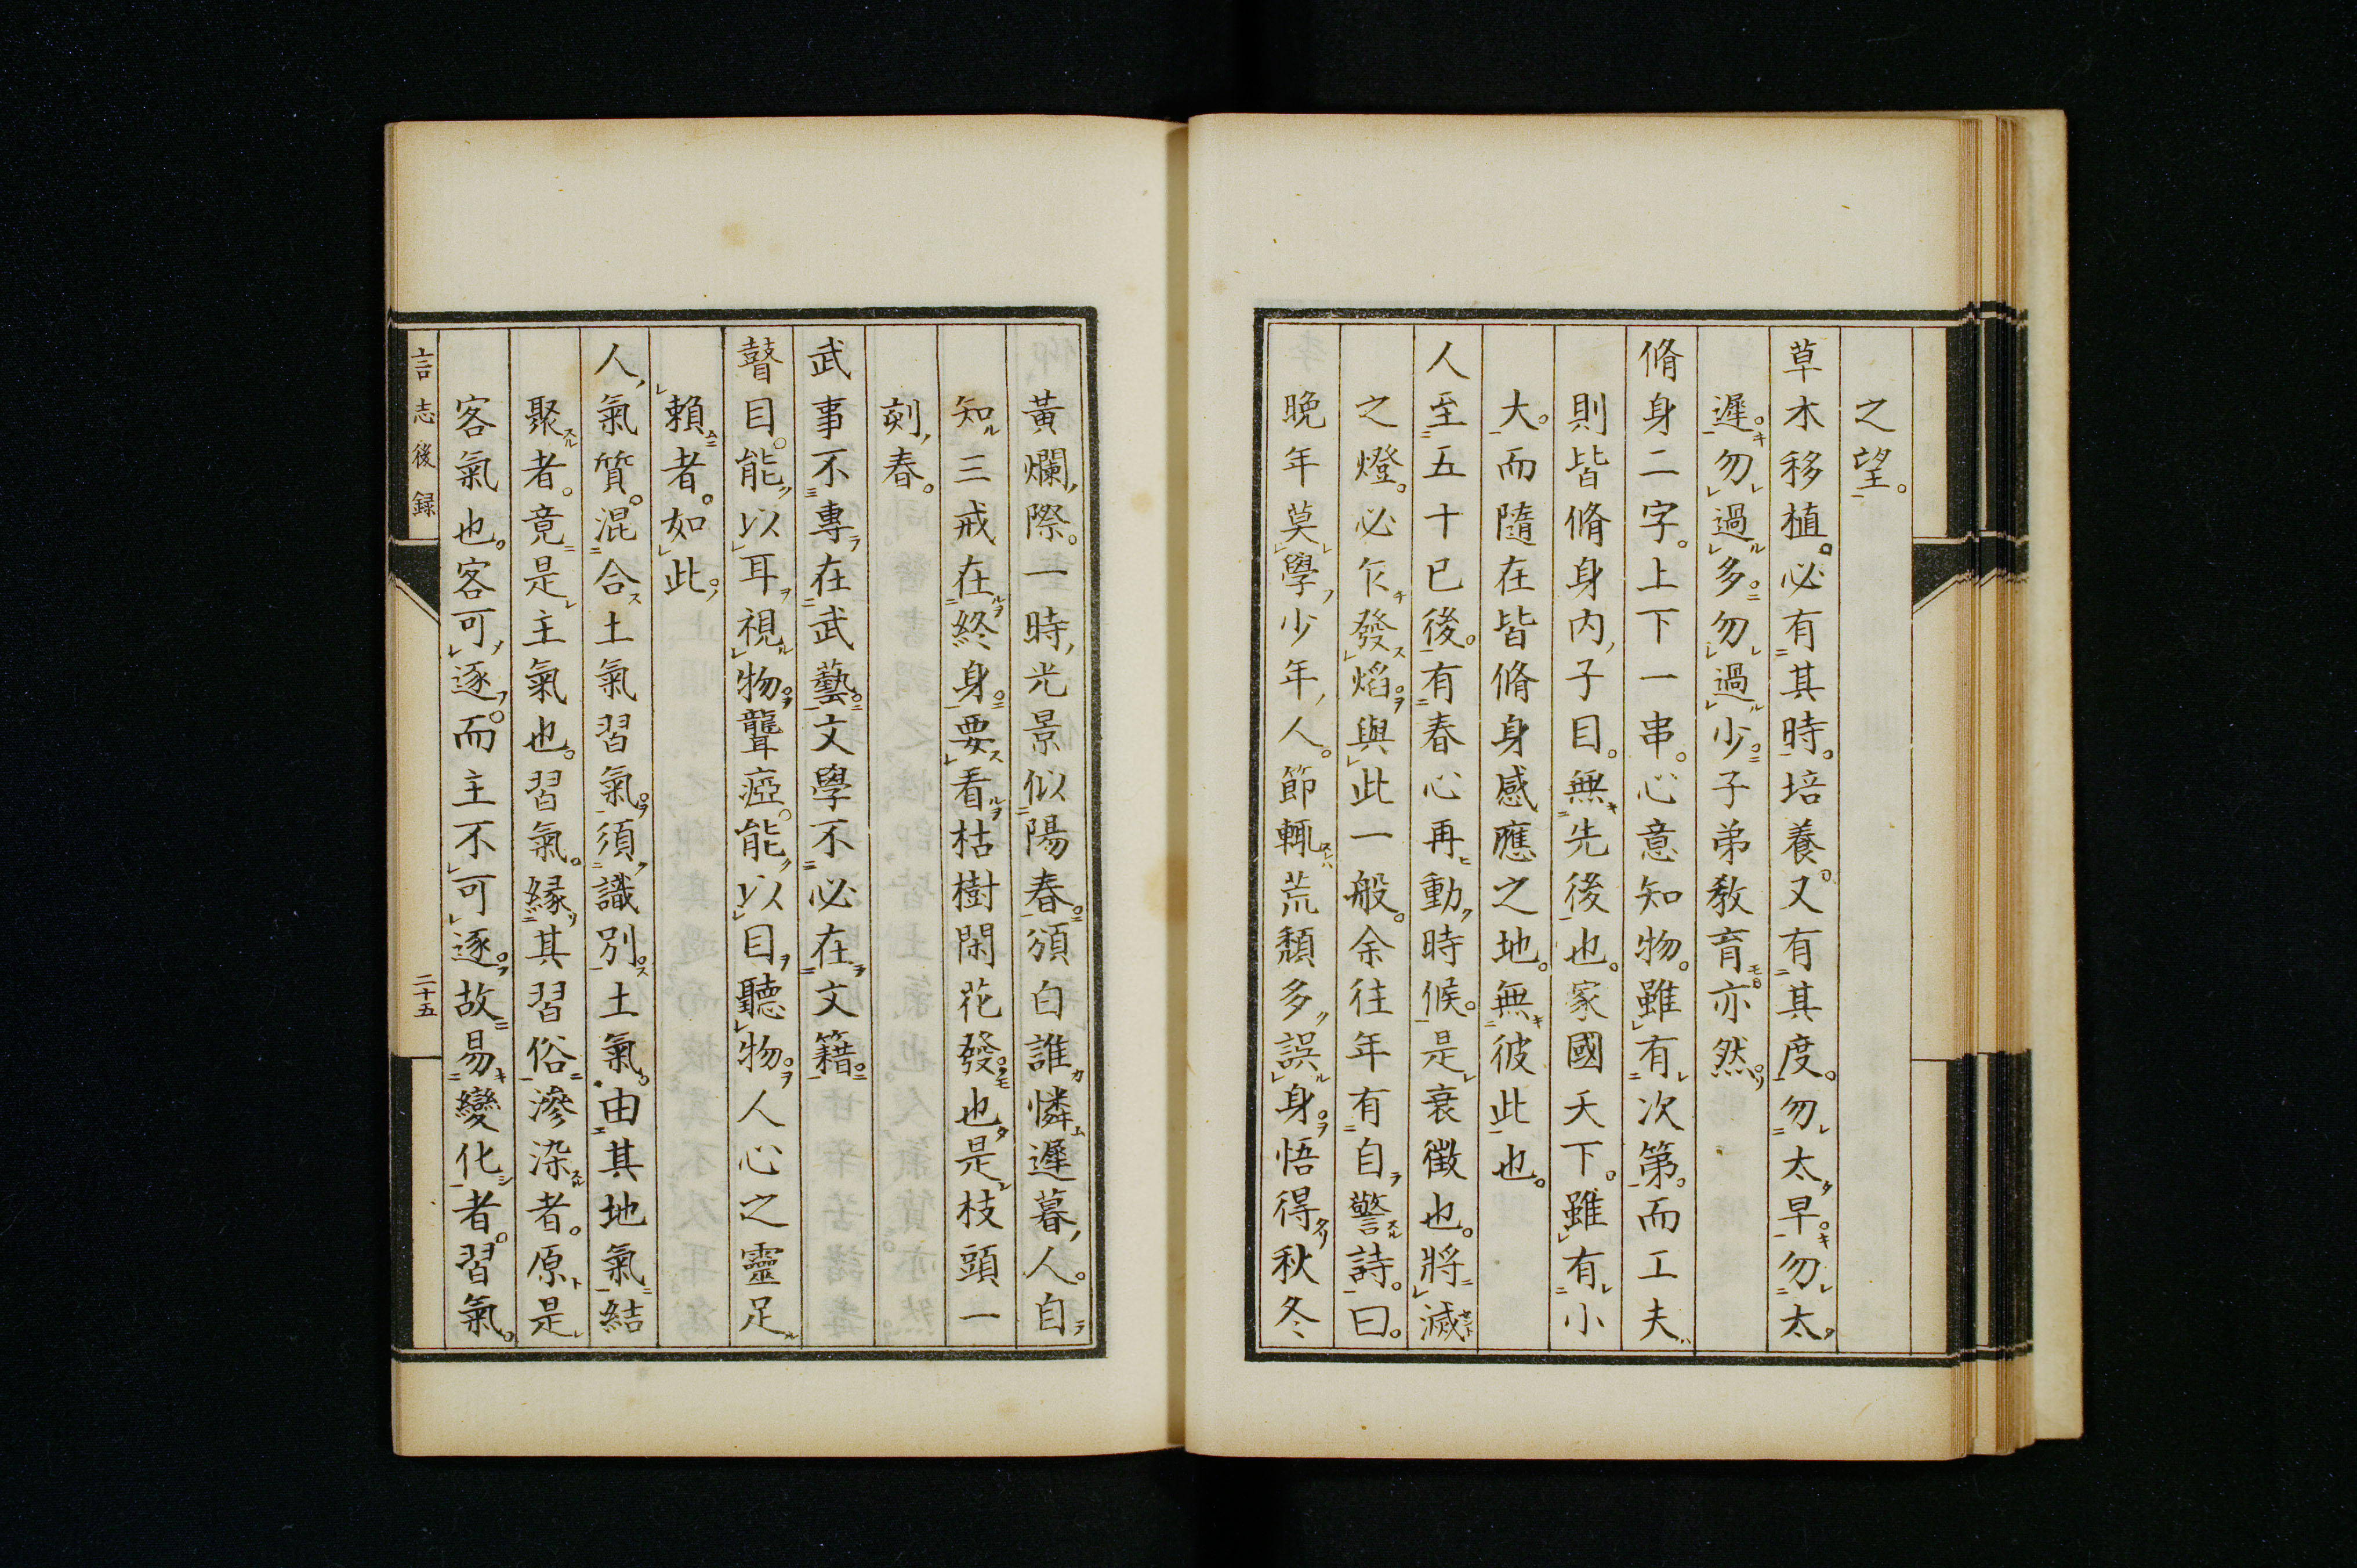 之望。
草木移植。必有其時。培養。又有其度。勿太早。勿太
遲。勿過多。勿過少。子弟教育亦然。
脩身二字。上下一串。心意知物。雖有次第。而工夫
則皆脩身内子目。無先後也。家國天下。雖有小
大。而隨在皆脩身感應之地。無彼此也。
人至五十已後。有春心再動時候。是衰徵也。將滅
之燈。必乍發焰。與此一般。余往年有自警詩。曰。
晩年莫學少年人。節輒荒頽多誤身。悟得秋冬
黃爛際。一時光景似陽春。頒白誰憐遲暮人。自
知三戒在終身。要看枯樹閑花發。也是枝頭一
刻春。
武事不專在武藝。文學不必在文籍。
瞽目。能以耳視物。聾瘂。能以目聽物。人心之靈足
賴者。如此。
人氣質。混合土氣習氣。須識別。土氣。由其地氣結
聚者。竟是主氣也。習氣。縁其習俗滲染者。原是
客氣也。客可逐。而主不可逐。故易變化者。習氣。
言志後録
二十五